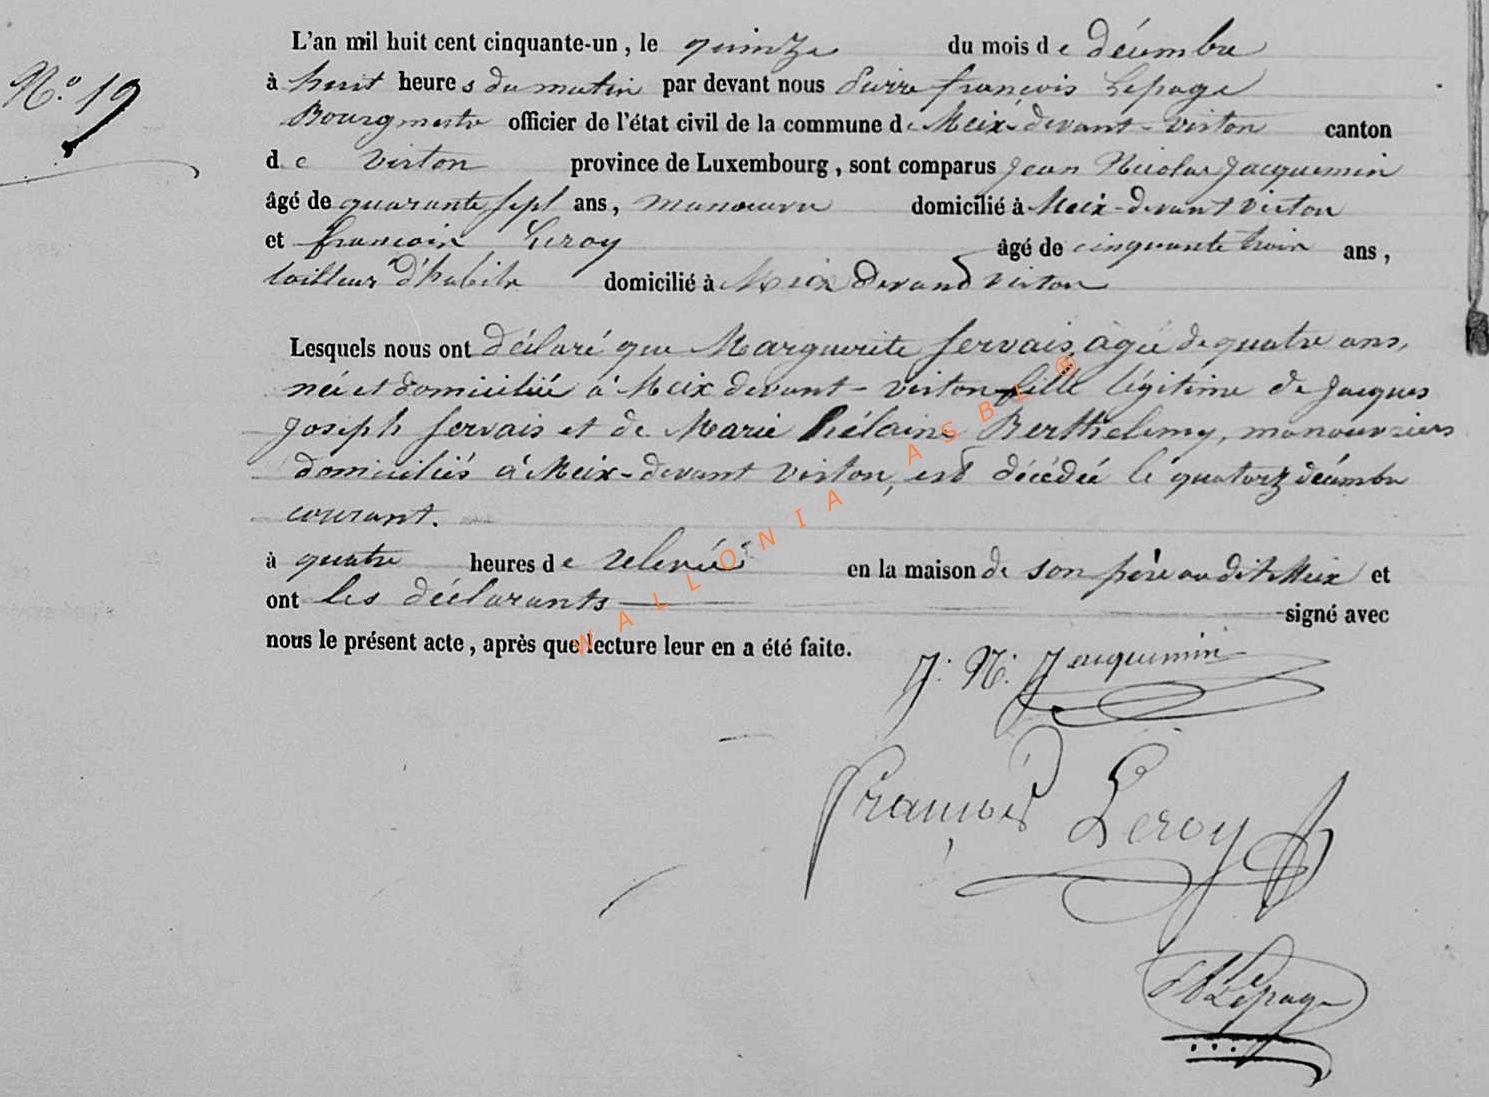 L'an mil huit cent cinquante-un, le quinze du mois de décembre
N.º 19
à huit heures du matin par devant nous Pierre françois Lepage
Bourgmestre officier de l'état civil de la commune de Meix-devant-virton canton
de virton province de Luxembourg, sont comparus Jean Nicolas Jacquemin
âgé de quarante sept ans, manoeuvre domicilié à Meix-devant virton
et francois Leroy âgé de cinquante trois ans,
tailleur d'habits domicilié à Meix devand virton
Lesquels nous ont déclaré que Marguerite Servais, agée de quatre ans,
née et domiciliée à Meix devant-virton fille légitime de Jacques
Joseph Servais et de Marie hélaine Berthelemy, manouvriers
domiciliés à Meix-devant virton, est décédée le quatorz décembre
courant.
à quatre heures de relevée en la maison de son père au dit Meix et
ont les déclarants signé avec
nous le présent acte, après que lecture leur en a été faite.
J. N. Jacquemin
François Leroy
Lepage
WALLONIA ASBL ®